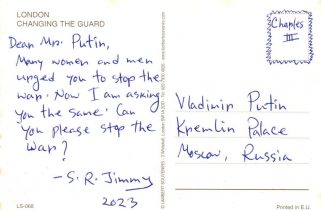 LONDON
CHANGING THE GUARD
Dear Mr. Putin,
Many women and men
urged you to stop the
war. Now I am asking
you the same. Can
you please stop the
war?
-S. R. Jimmy
2023
LS-068
Charles
III
Vladimir Putin
Kremlin Palace
Moscow, Russia
Printed in E.U.